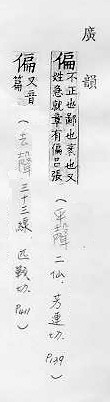 廣韻
偏 不正也鄙也衺也又
姓急就章有偏呂張
(平聲 二仙.芳連切. P139)
偏 又音
篇 (去聲 三十三線 匹戰切. P411)